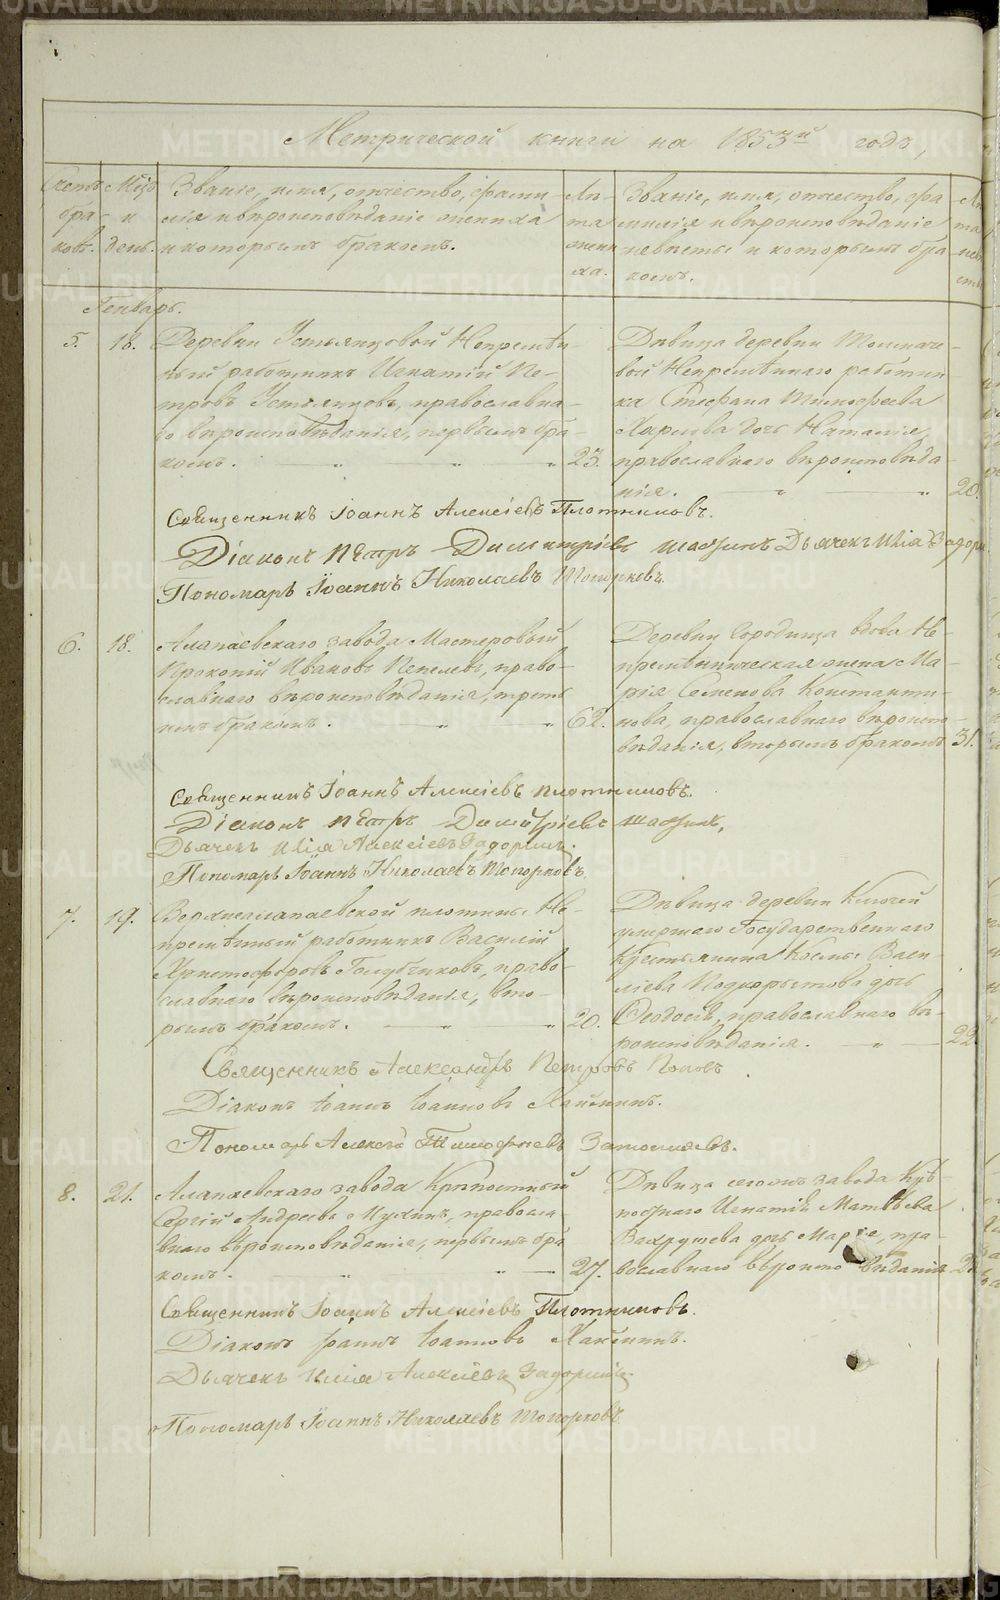 Метрической книги на 1853й годъ,
Счетъ браковъ.
Мѣц. и день.
Званіе, имя, отчество, фами-
лія и вѣроисповѣданіе жениха
и которымъ бракомъ.
Лѣ-
та
жени
ха.
Званіе, имя, отчество, фа
милія и вѣроисповѣданіе
невѣсты и которымъ бра
комъ.
Генварь.
5. 18. Деревни Устьянцовой Непремѣн
ный работникъ Игнатій Пе-
тровъ Устьянцовъ, православна-
го вѣроисповѣданія, первымъ бра
комъ. 23.
Дѣвица деревни Толмаче-
вой Непремѣннаго работни
ка Стефана Тимофеева
Харлова дочь Наталія,
православнаго вѣроисповѣда
нія. 20.
Священникъ Іоаннъ Алексіевъ Плотниковъ.
Діаконъ Петръ Димитріевъ Дьячекъ Илія Задорин
Пономарь Іоаннъ Николаевъ Топорковъ.
6. 18. Алапаевскаго завода Мастеровый
Прокопій Ивановъ Пепелевъ, право-
славнаго вѣроисповѣданія, треть
имъ бракомъ. 62.
Деревни Городища вдова Не-
премѣнническая жена Ма-
рія Семенова Константи-
нова, православнаго вѣроиспо-
вѣданія, вторымъ бракомъ 31.
Священникъ Іоаннъ Алексіевъ Плотниковъ.
Діаконъ Петръ Димитріевъ
Дьячекъ Илія Алексіевъ Задоринъ.
Пономарь Іоаннъ Николаевъ Топорковъ.
7. 19. Верхнеалапаевской плотины Не-
премѣнный работникъ Василій
Христофоровъ Голубчиковъ, право-
славнаго вѣроисповѣданія, вто-
рымъ бракомъ. 20.
Дѣвица деревни Ключей
умершаго Государственнаго
Крестьянина Космы Васи-
лієва Подкорытова дочь
Ѳеодосія, православнаго вѣ-
роисповѣданія. 22
Священникъ Александръ Петровъ Поповъ
Діаконъ Іоаннъ Іоанновъ
Пономарь Алексѣй Тимофеевъ
8. 21. Алапаевскаго завода Крѣпостный
Сергій Андреевъ Мухинъ, правосла-
внаго вѣроисповѣданія, первымъ бра
комъ. 27.
Дѣвица тогожъ завода Крѣ-
постнаго Игнатія Матвѣева
Вахрушева дочь Марія, пра-
вославнаго вѣроиспо вѣданія 2
Священникъ Іоаннъ Алексіевъ Плотниковъ.
Діаконъ Іоаннъ Іоанновъ
Дьячекъ Илія Алексіевъ Задоринъ.
Пономарь Іоаннъ Николаевъ Топорковъ
METRIKI.GASO-URAL.RU